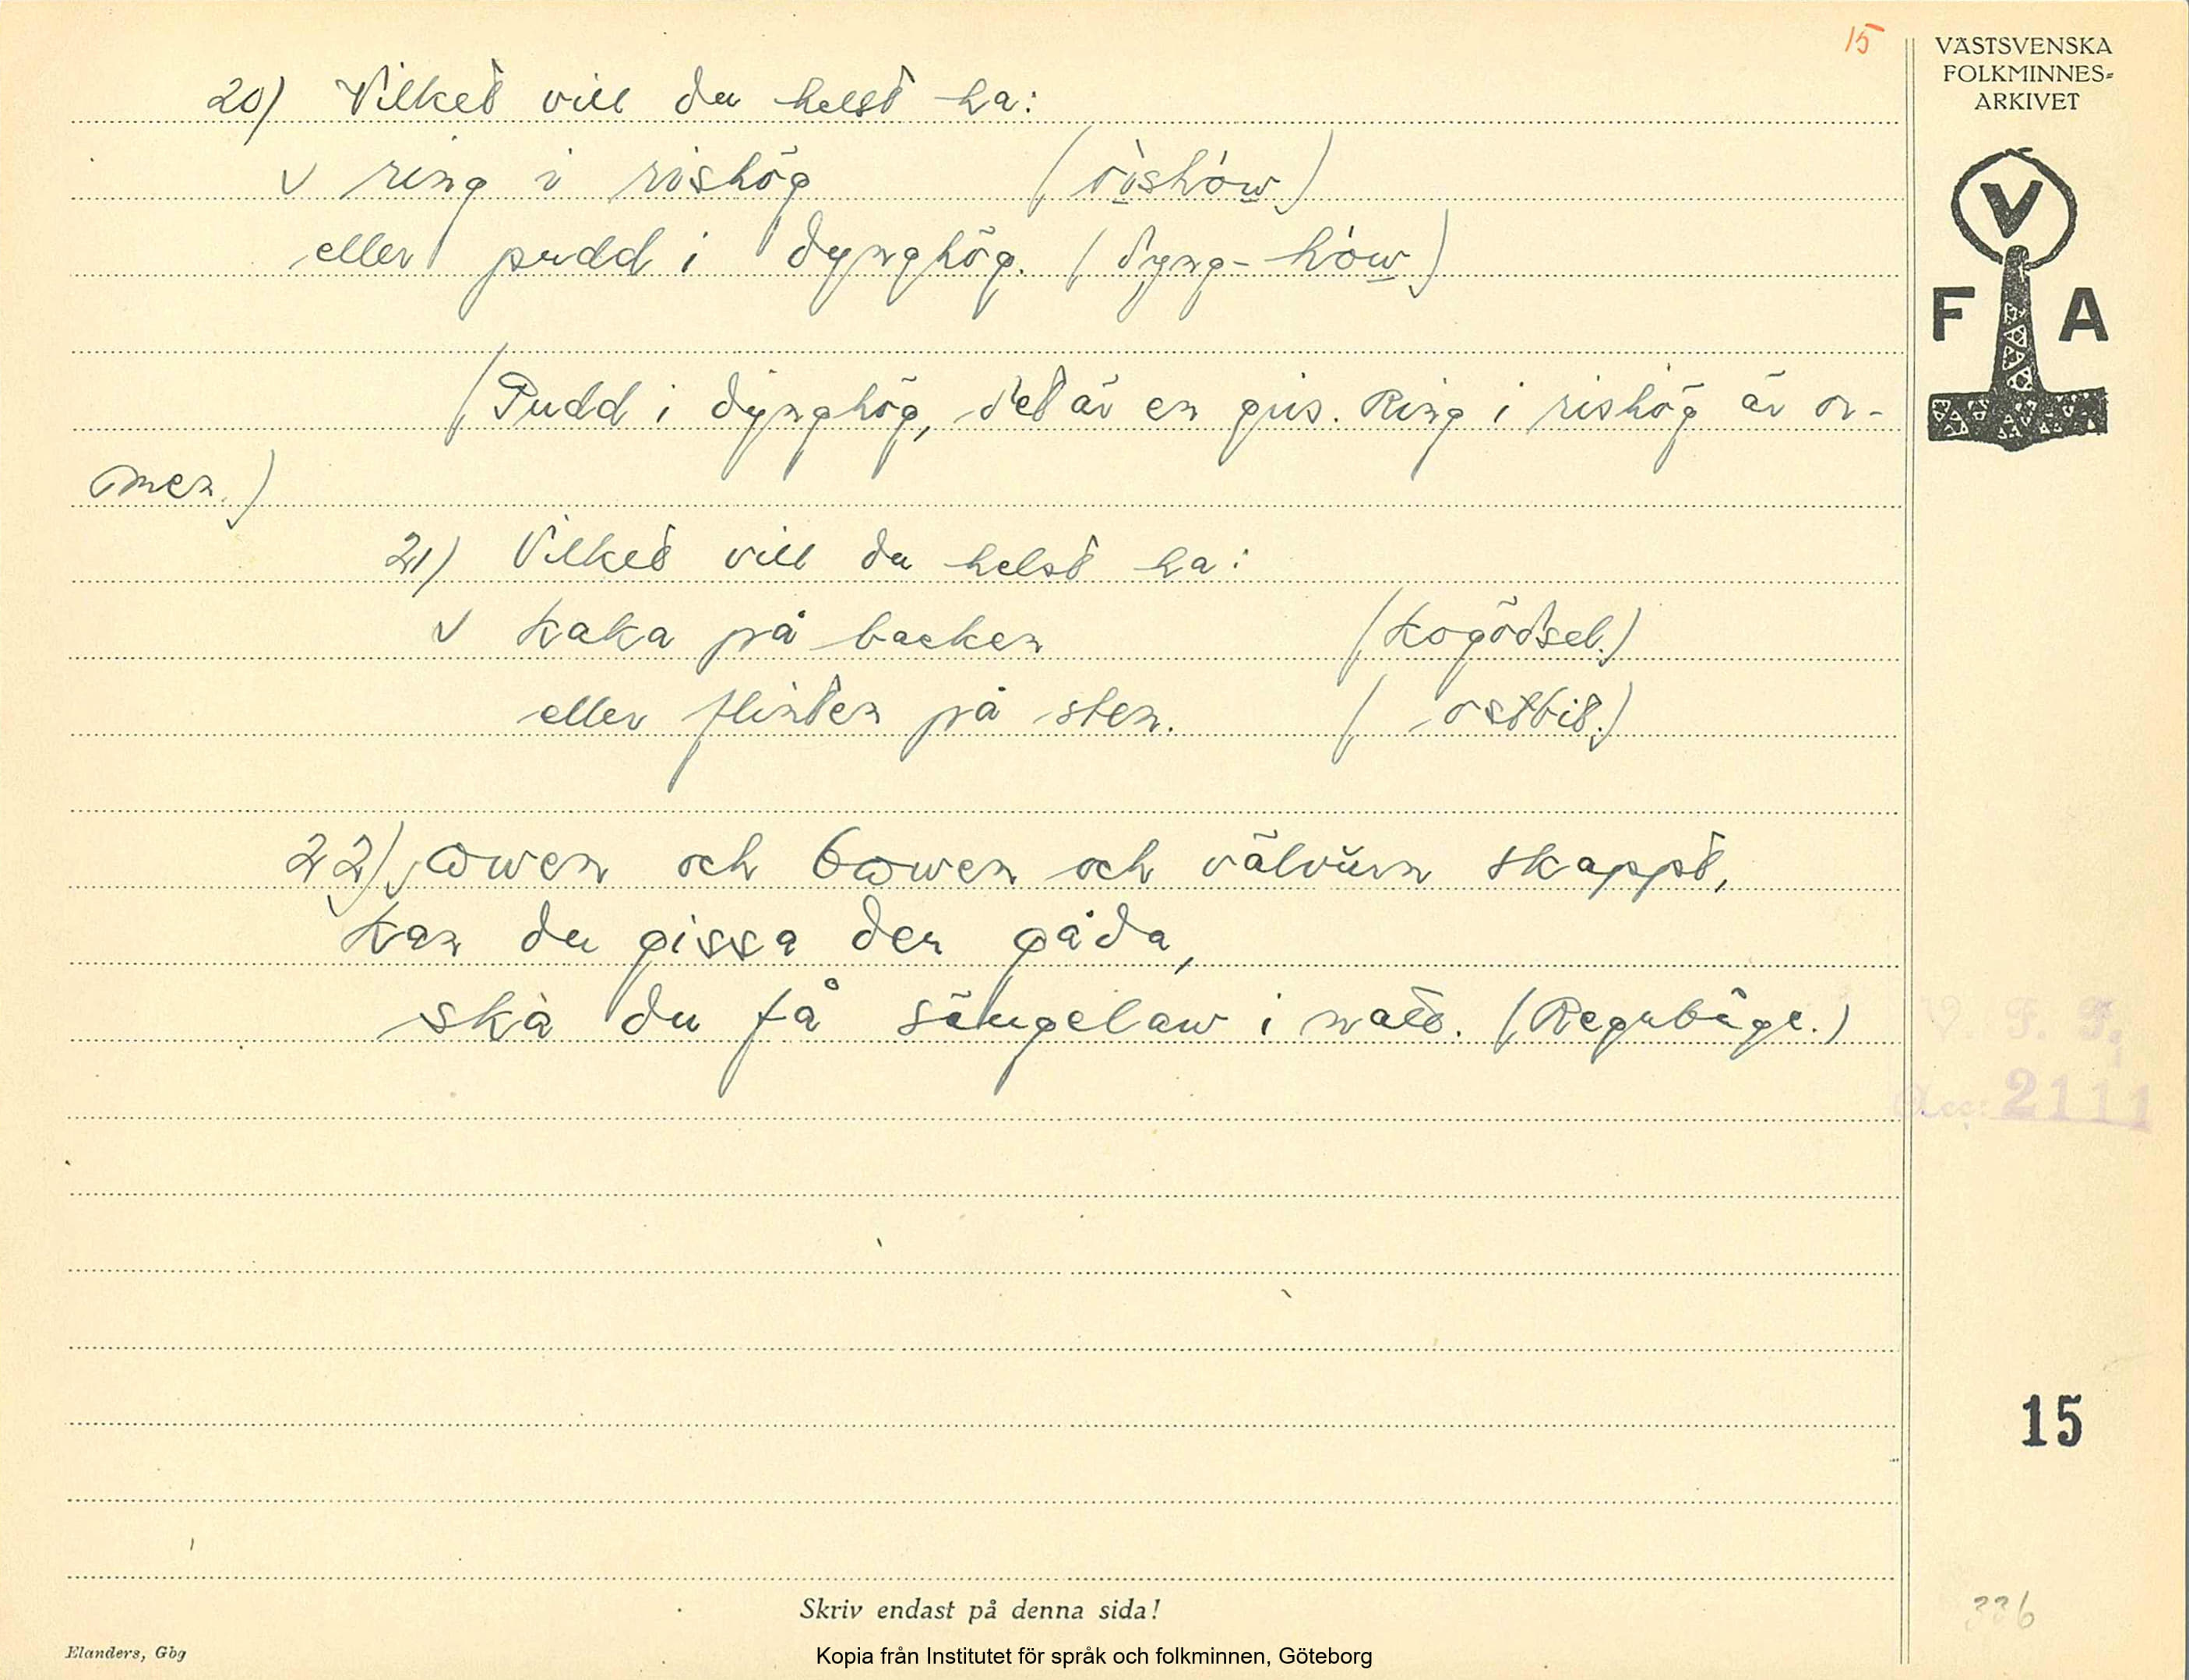 15
VÄSTSVENSKA
FOLKMINNES-
ARKIVET
V
F A
20) Vilket vill du helst ha:
v ring i rishög (rìshòw)
eller pudd i dynghög. (dyng-hów)
(Pudd i dynghög, det är en gris. Ring i rishög är or-
men.)
21) Vilket vill du helst ha:
v kaka på backen (kogödsel.)
eller flinten på sten. (ostbit.)
22) owen och bowen och välvurn skappt,
kan du gissa den gåda,
ska du få sängelaw i natt. (Regnbåge.)
V. F. F.
Acc: 2111
15
336
Skriv endast på denna sida!
Elanders, Gbg
Kopia från Institutet för språk och folkminnen, Göteborg